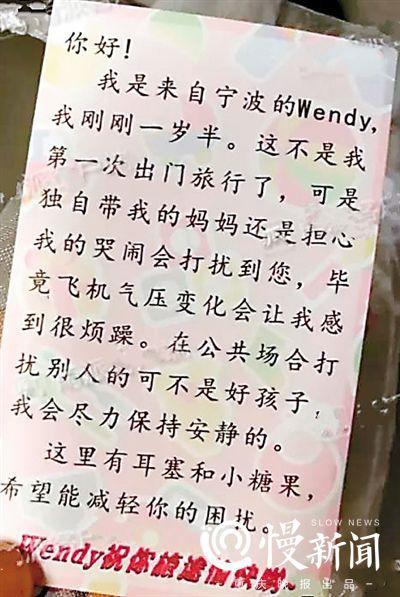 你好！
我是来自宁波的Wendy,
我刚刚一岁半。这不是我
第一次出门旅行了，可是
独自带我的妈妈还是担心
我的哭闹会打扰到您，毕
竟飞机气压变化会让我感
到很烦躁。在公共场合打
扰别人的可不是好孩子，
我会尽力保持安静的。
这里有耳塞和小糖果，
希望能减轻你的困扰。
Wendy祝你旅途愉快哟
SLOW NEWS
慢新闻
重庆晚报出品